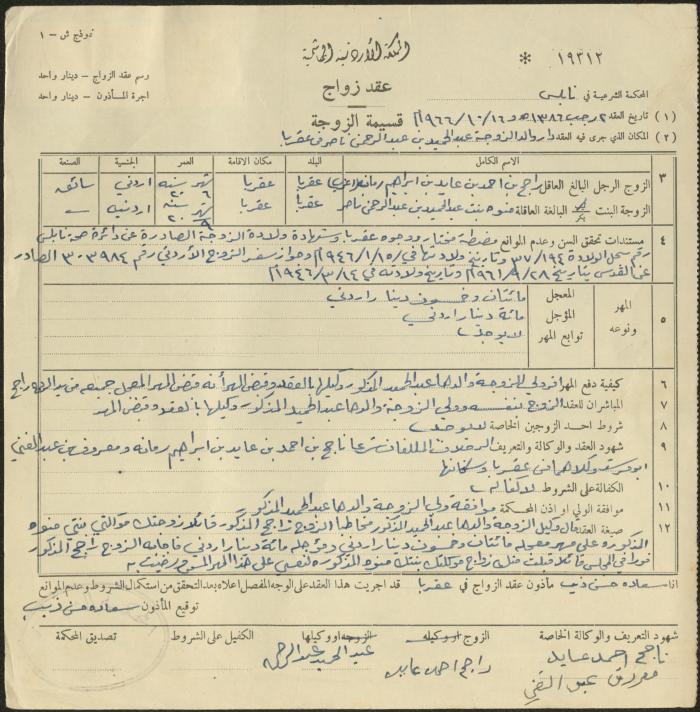 نموذج ش - ١
المملكة الأردنية الهاشمية
١٩٣١٢ *
رسم عقد الزواج - دينار واحد
اجرة المأذون - دينار واحد
عقد زواج
المحكمة الشرعية في نابلس
قسيمة الزوجة
(١) تاريخ العقد ٢ رجب ١٣٨٦ هـ و ١٦/١٠/١٩٦٦م
(٢) المكان الذي جرى فيه العقد دار والد الزوجة عبد الحميد بن عبد الرحمن ناصر في عقربا
الاسم الكامل البلد مكان الاقامة العمر الجنسية الصنعة
٣ الزوج الرجل البالغ العاقل راجح بن احمد بن عايد بن ابراهيم رمانه عقربا عقربا شهر سنة ٦ ٢٠ اردني سائق
الزوجة البنت البالغة العاقلة منوه بنت عبد الحميد بن عبد الرحمن ناصر عقربا عقربا شهر سنة ٩ ٢٠ اردنية
٤ مستندات تحقق السن وعدم الموانع مضبطة مختار ووجوه عقربا وشهادة ولادة الزوجة الصادرة عن دائرة صحة نابلس
رقم سجل الولادة ٣٧/١٩٤ وتاريخ ولادتها في ١٥/١/١٩٤٦م وجواز سفر الزوج الأردني رقم ٣٠٣٩٨٤ الصادر
عن القدس بتاريخ ٢٨/٩/١٩٦١م وتاريخ ولادته في ١٤/٣/١٩٤٦م
٥ المهر ونوعه
المعجل مائتان وخمسون دينار اردني
المؤجل مائة دينار اردني
توابع المهر لا يوجد
٦ كيفية دفع المهر اقر ولي الزوجة والدها عبد الحميد المذكور وكيلها بالعقد وقبض المهر أنه قبض المهر المعجل جميعه من يد الزوج راجح
٧ المباشران للعقد الزوج بنفسه وولي الزوجة والدها عبد الحميد المذكور وكيلها بالعقد وقبض المهر
٨ شروط احد الزوجين الخاصة لا يوجد
٩ شهود العقد والوكالة والتعريف الرجلان المكلفان شرعا ناجح بن احمد بن عايد بن ابراهيم رمانه ومعزوق بن عبد الغني
وكلاهما من عقربا وسكانها
١٠ الكفالة على الشروط لا كفالة
١١ موافقة الولي او اذن المحكمة موافقة ولي الزوجة والدها عبد الحميد المذكور
١٢ صيغة العقد قال وكيل الزوجة والدها عبد الحميد المذكور مخاطبا الزوج راجح المذكور قائلا زوجتك موكلتي بنتي منوه
المذكورة على مهر معجله مائتان وخمسون دينار اردني ومؤجله مائة دينار اردني فاجابه الزوج راجح المذكور
فورا في المجلس قائلا قبلت منك زواج موكلتك بنتك منوه المذكورة لنفسي على هذا المهر المسمى ورضيت به
انا سعاده حسن ذيب مأذون عقد الزواج في عقربا قد اجريت هذا العقد على الوجه المفصل اعلاه بعد التحقق من استكمال الشروط وعدم الموانع
توقيع المأذون سعاده حسن ذيب
شهود التعريف والوكالة الخاصة الزوج او وكيله الزوجة او وكيلها الكفيل على الشروط تصديق المحكمة
ناجح احمد عايد راجح احمد عايد عبد الحميد عبد الرحمن
معزوق عبد الغني